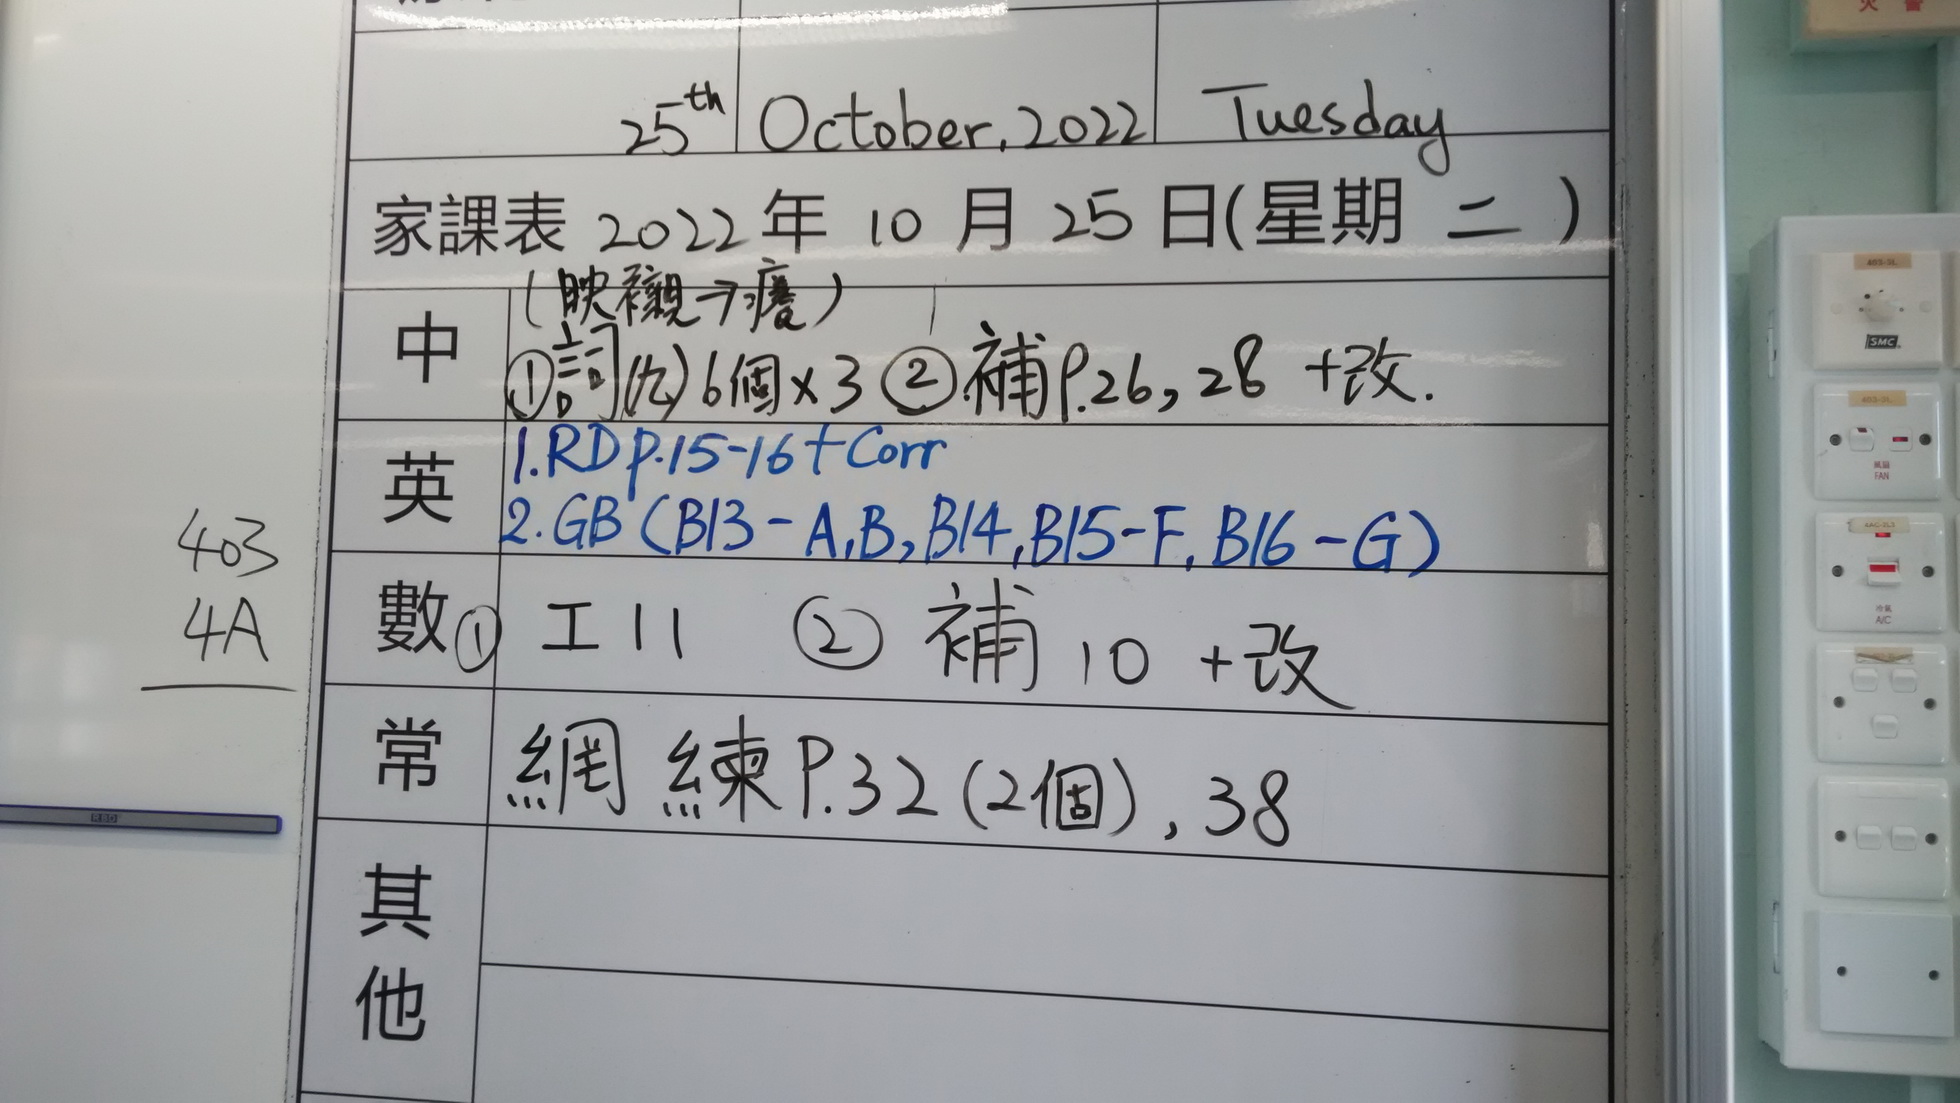 25th October, 2022 Tuesday
家課表 2022 年 10 月 25 日(星期 二 )
中
① 詞(九) 6個 x 3 ② 補P.26, 28 +改.
英
1. RD p.15-16 + Corr
2. GB (B13 - A, B, B14, B15-F, B16 - G)
數 ① 工 11 ② 補 10 + 改
常
網 練 P.32 (2個), 38
其他
403
4A
SMC
風扇
FAN
冷氣
A/C